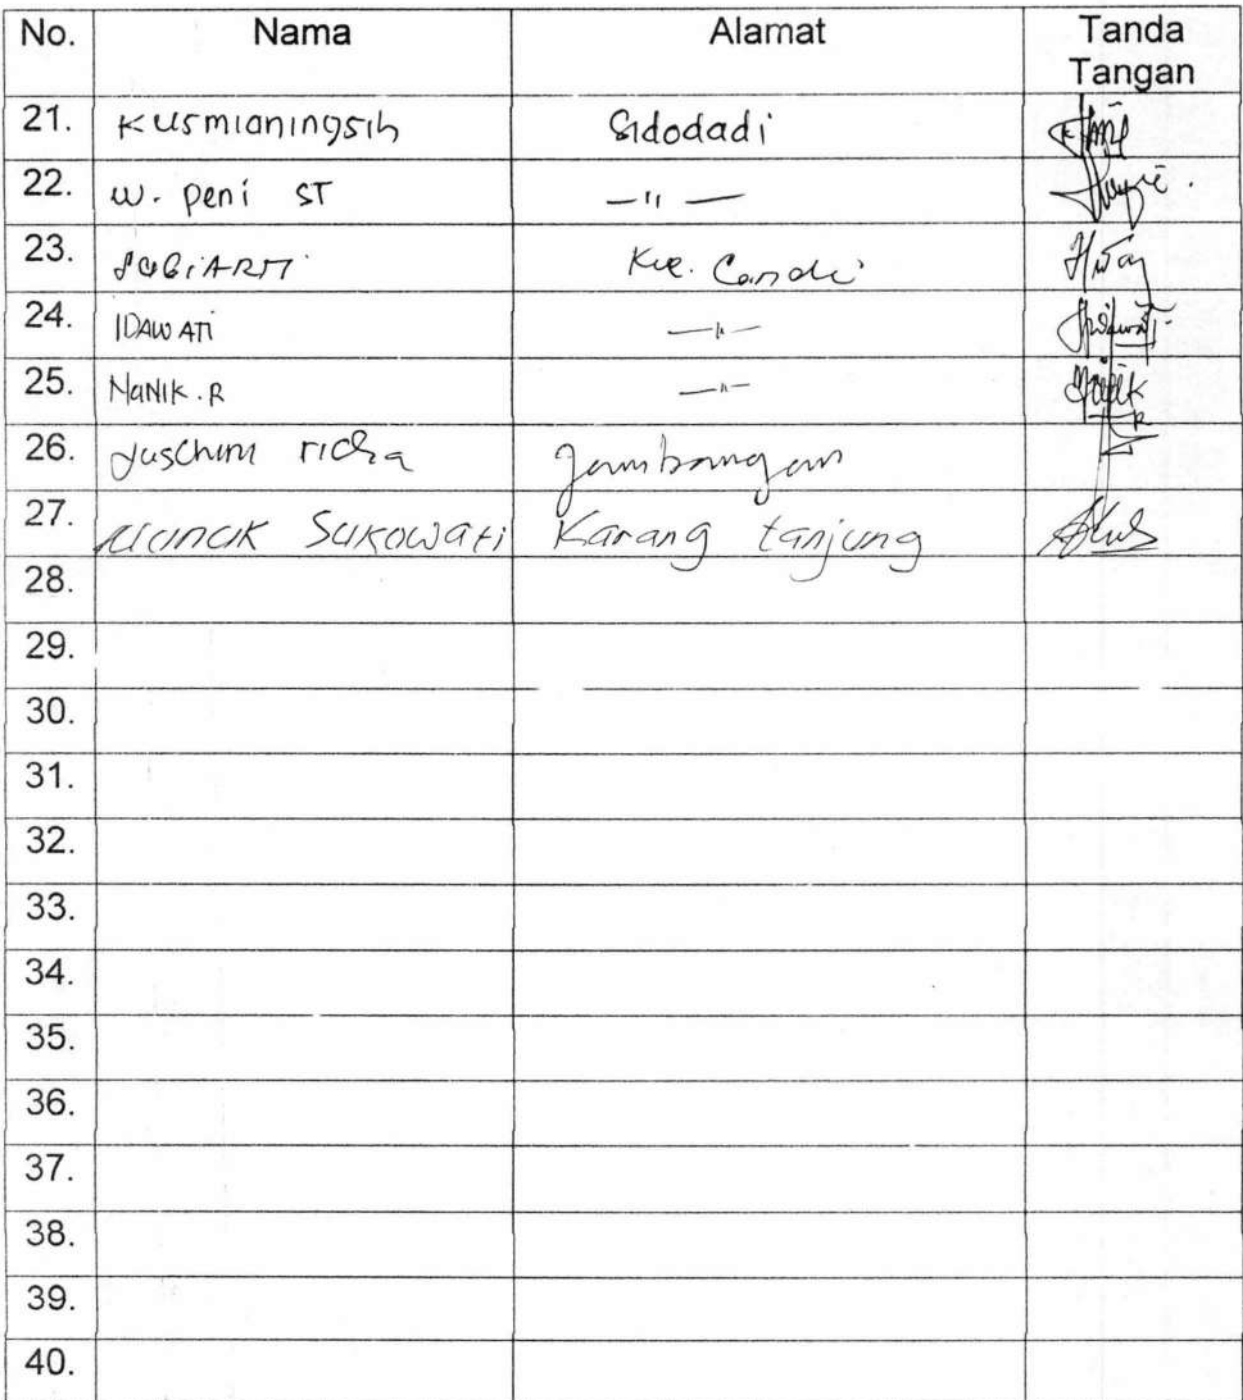 No. Nama Alamat Tanda
Tangan
21. Kusmianingsih Sidodadi
22. W. Peni ST — " —
23. SUGIARTI Candi
24. IDAWATI — " —
25. MaNIK.R — " —
26. richa Jambangan
27. Nanak Sukowati Karang tanjung
28.
29.
30.
31.
32.
33.
34.
35.
36.
37.
38.
39.
40.